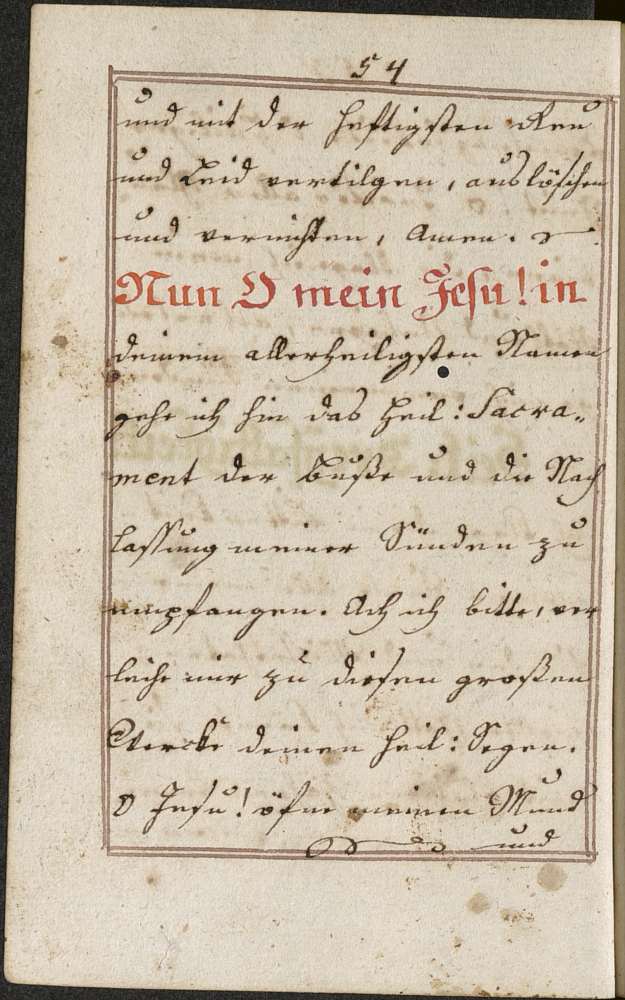 54
und mit der heftigsten Reu
und Leid vertilgen, auslöschen
und vernichten, Amen.
Nun O mein Jesu! in
deinem allerheiligsten Namen
gehe ich hin das heil: Sacra„
ment der Buße und die Nach
lassung meiner Sünden zu
empfangen. Ach ich bitte, ver
leihe mir zu diesen großen
Wercke deinen heil: Segen.
O Jesu! öfne meinen Mund
und